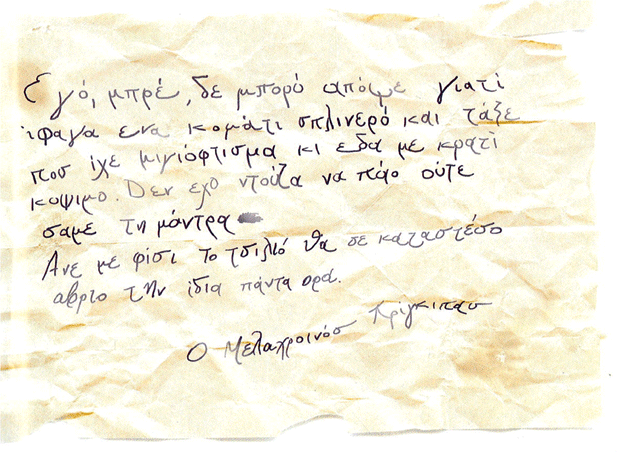 Εγό, μπρέ, δε μπορό απόψε γιατί
ίφαγα ενα κομάτι σπλινερό και τάξε
που ίχε μιγιόφτισμα κι εδα με κρατί
κοψιμο. Δεν εχο ντούζα να πάο ούτε
σαμε τη μάντρα
Ανε με φίσι το τσιλιό θα σε καταστέσο
αβριο την ίδια πάντα ορα.
Ο Μελαχροινόσ Πρίγκιπασ